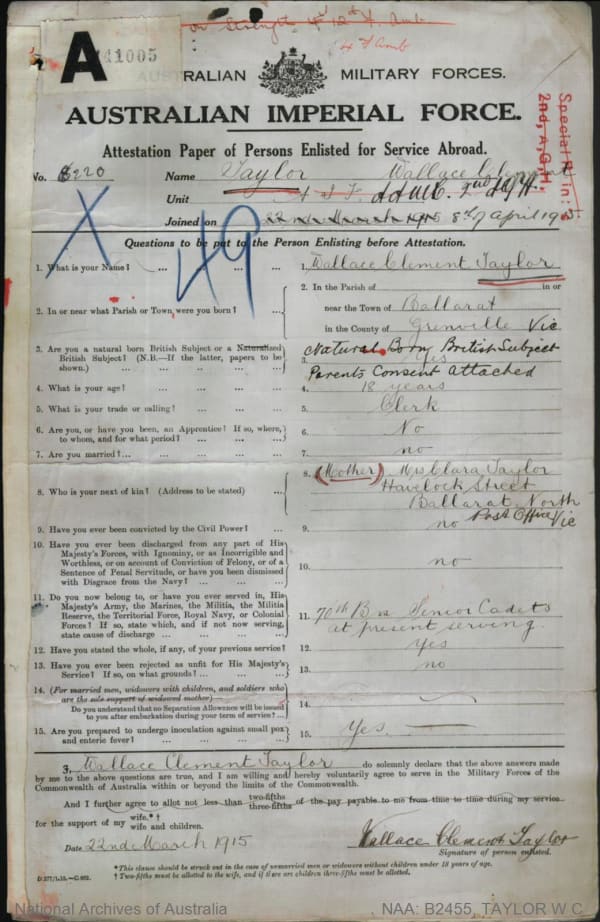 on Strength of 12 F. Amb
4 F Amb
A
41005
AUSTRALIAN MILITARY FORCES.
AUSTRALIAN IMPERIAL FORCE.
Attestation Paper of Persons Enlisted for Service Abroad.
Special R in:
2nd, A,G,H.
No. 6220 Name Taylor Wallace Clement
Unit A I F. AAMC. 2nd AGH
Joined on 22 March 1915 8th April 1915
X 49
Questions to be put to the Person Enlisting before Attestation.
1. What is your Name? ... ... ... 1. Wallace Clement Taylor
2. In or near what Parish or Town were you born? ... 2. In the Parish of in or
near the Town of Ballarat
in the County of Grenville Vic
3. Are you a natural born British Subject or a Naturalised British Subject? (N.B.—If the latter, papers to be shown.) 3. Natural Born British Subject
Yes
Parents Consent Attached
4. What is your age? 4. 18 years
5. What is your trade or calling? 5. Clerk
6. Are you, or have you been, an Apprentice? If so, where, to whom, and for what period? 6. No
7. Are you married?... 7. no
8. Who is your next of kin? (Address to be stated) ... 8. (Mother) Mrs Clara Taylor
Havelock Street
Ballarat North
Post Office Vic
9. Have you ever been convicted by the Civil Power? 9. no
10. Have you ever been discharged from any part of His Majesty's Forces, with Ignominy, or as Incorrigible and Worthless, or on account of Conviction of Felony, or of a Sentence of Penal Servitude, or have you been dismissed with Disgrace from the Navy? 10. no
11. Do you now belong to, or have you ever served in, His Majesty's Army, the Marines, the Militia, the Militia Reserve, the Territorial Force, Royal Navy, or Colonial Forces? If so, state which, and if not now serving, state cause of discharge 11. 70th Bn Senior Cadets
at present serving.
12. Have you stated the whole, if any, of your previous service? 12. Yes
13. Have you ever been rejected as unfit for His Majesty's Service? If so, on what grounds? 13. no
14. (For married men, widowers with children, and soldiers who are the sole support of widowed mother)—
Do you understand that no Separation Allowance will be issued to you after embarkation during your term of service? 14.
15. Are you prepared to undergo inoculation against small pox and enteric fever? 15. Yes.
I, Wallace Clement Taylor do solemnly declare that the above answers made
by me to the above questions are true, and I am willing and hereby voluntarily agree to serve in the Military Forces of the
Commonwealth of Australia within or beyond the limits of the Commonwealth.
And I further agree to allot not less than two-fifths three-fifths of the pay payable to me from time to time during my service
for the support of my wife.*† wife and children.
Date 22nd March 1915 Wallace Clement Taylor
Signature of person enlisted.
*This clause should be struck out in the case of unmarried men or widowers without children under 18 years of age.
† Two-fifths must be allotted to the wife, and if there are children three-fifths must be allotted.
National Archives of Australia NAA: B2455, TAYLOR W C